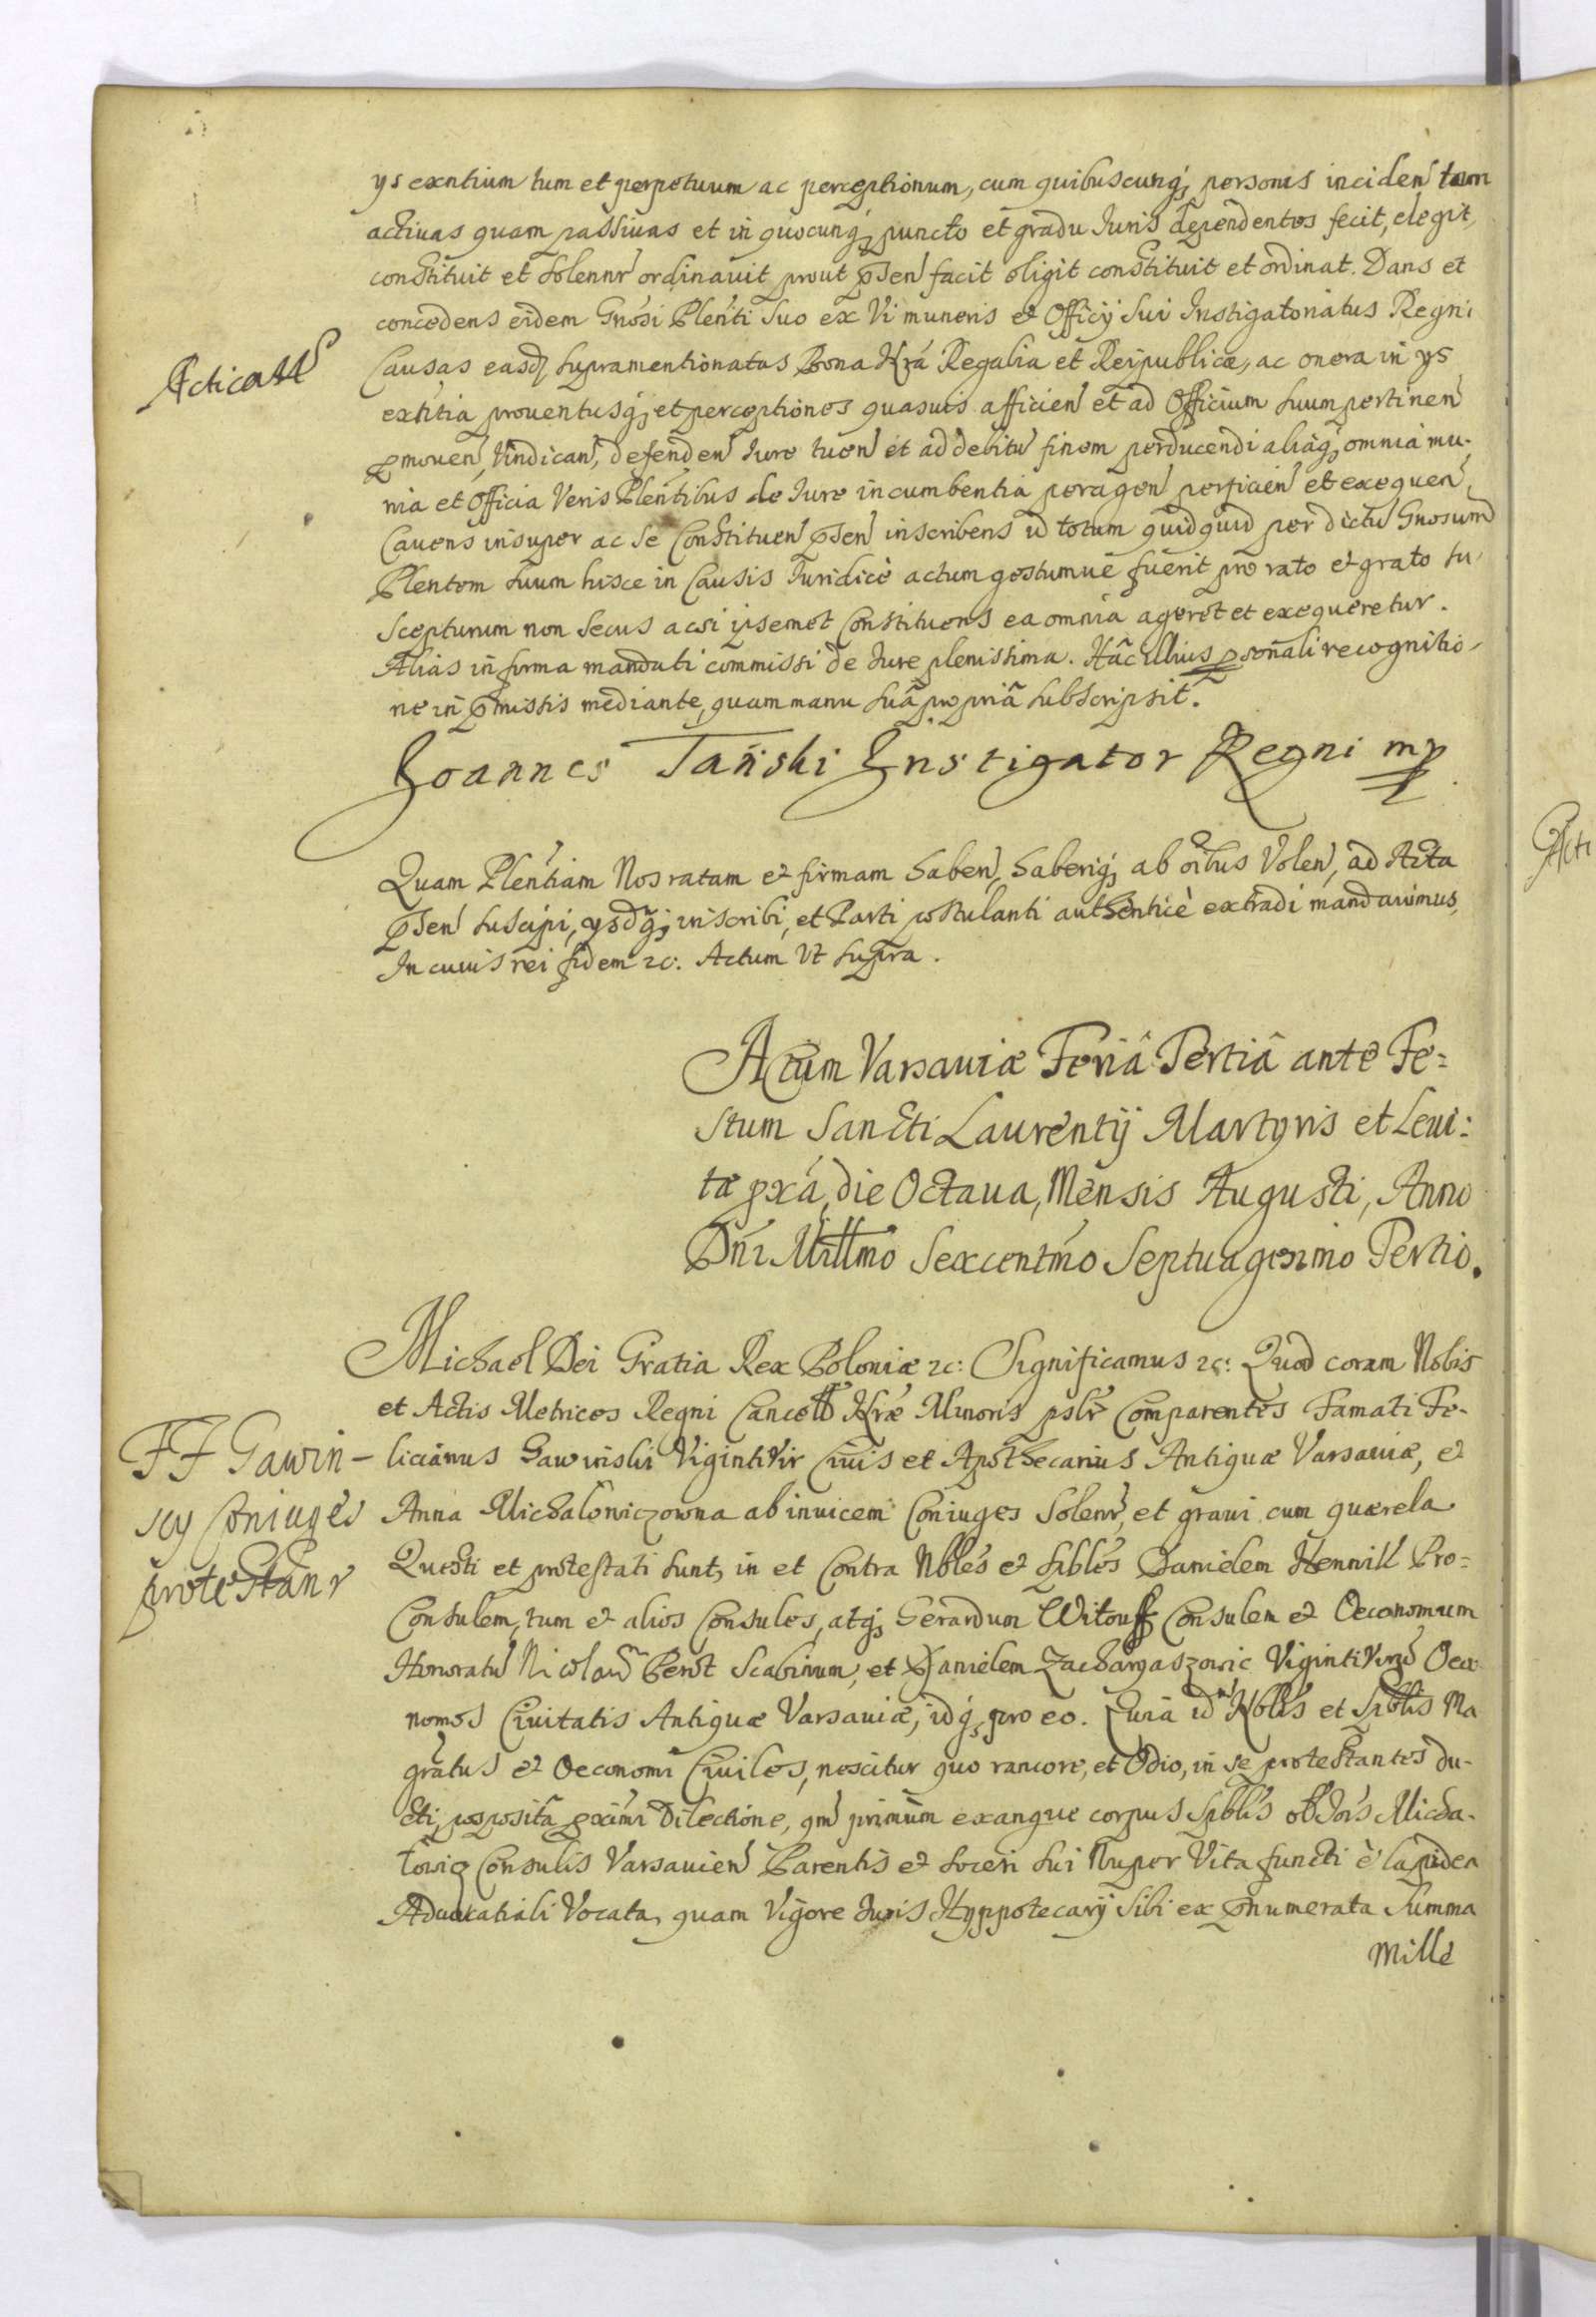 ys exntium tum et perpetuum ac perceptionum, cum quibuscunq personis inciden tam
activas quam passivas et in quocunq puncto et gradu Iuris dependentes fecit, elegit,
constituit et solennr ordinavit prout pnsen facit eligit constituit et ordinat. Dans et
concedens eidem Gnosi Plenti suo ex Vi muneris et Officij sui Instigatoriatus Regni
Causas easd supramentionatas Bona nra Regalia et Reipublicæ, ac onera in ys
Acticatt
extitia proventusq et perceptiones quasvis afficien et ad Officium suum pertinen
pmoven, Vindican, defenden Iure tuen et ad debitu finem perducendi aliaq omnia mu-
nia et Officia Veris Plentibus de Iure incumbentia peragen perficien et exequen,
Cavens insuper ac se Constituen pnsen inscribens id totum quidquid per dictu Gnosum
Plentem suum hisce in Causis Iuridicè actum gestumve fuerit pro rato et grato su-
scepturum non secus acsi ipsemet Constituens ea omnia ageret et exequeretur.
Alias in forma mandati commissi de Iure plenissima. Hâc illius psonali recognitio-
ne in pmissis mediante, quam manu suâ propriâ subscripsit.
Joannes Tański Instigator Regni mp
Quam Plentiam Nos ratam et firmam haben, haberiq ab oibus Volen, ad Acta
pnsen suscipi, ysdq inscribi, et Parti postulanti authenticè extradi mandavimus,
In cuius rei fidem &c: Actum Vt supra.
Actum Varsaviæ Feriâ Tertiâ ante Fe=
stum Sancti Laurentij Martyris et Levi:
tæ pxa, die Octava, Mensis Augusti, Anno
Dni Millmo Sexcentmo Septuagesimo Tertio.
Michael Dei Gratia Rex Poloniæ &c: Significamus &c: Quod coram Nobis
et Actis Metrices Regni Cancell nræ Minoris pslr Comparentes Famati Fe-
FF Gawin-
scy Coniuges
protestanr
licianus Gawinski Vigintivir Civis et Apothecarius Antiquæ Varsaviæ, et
Anna Michalowiczowna ab invicem Coniuges Solenr, et gravi cum quærela
Questi et protestati sunt, in et Contra Nbles et spbles Danielem Hennik Pro=
Consulem, tum et alios Consules, atq Gerardum Witouff Consulem et Oeconomum
Honoratu Nicolaum Benot Scabinum, et Danielem Zacharyaszowic Vigintivirū Oeco
nomos Civitatis Antiquæ Varsaviæ, idq pro eo. Quia id Nobles et spbles Ma
gratus et Oeconomi Civiles, nescitur quo rancore, et Odio, in se protestantes du-
cti, posposita pximi Dilectione, qm primum exangue corpus spblis olb Iois Micha-
lowicz Consulis Varsavien Parentis et soceri sui Nuper Vita functi è lapidea
Advocatiali Vocata, quam Vigore Iuris Hyppotecarij sibi ex pnumerata summa
Mille